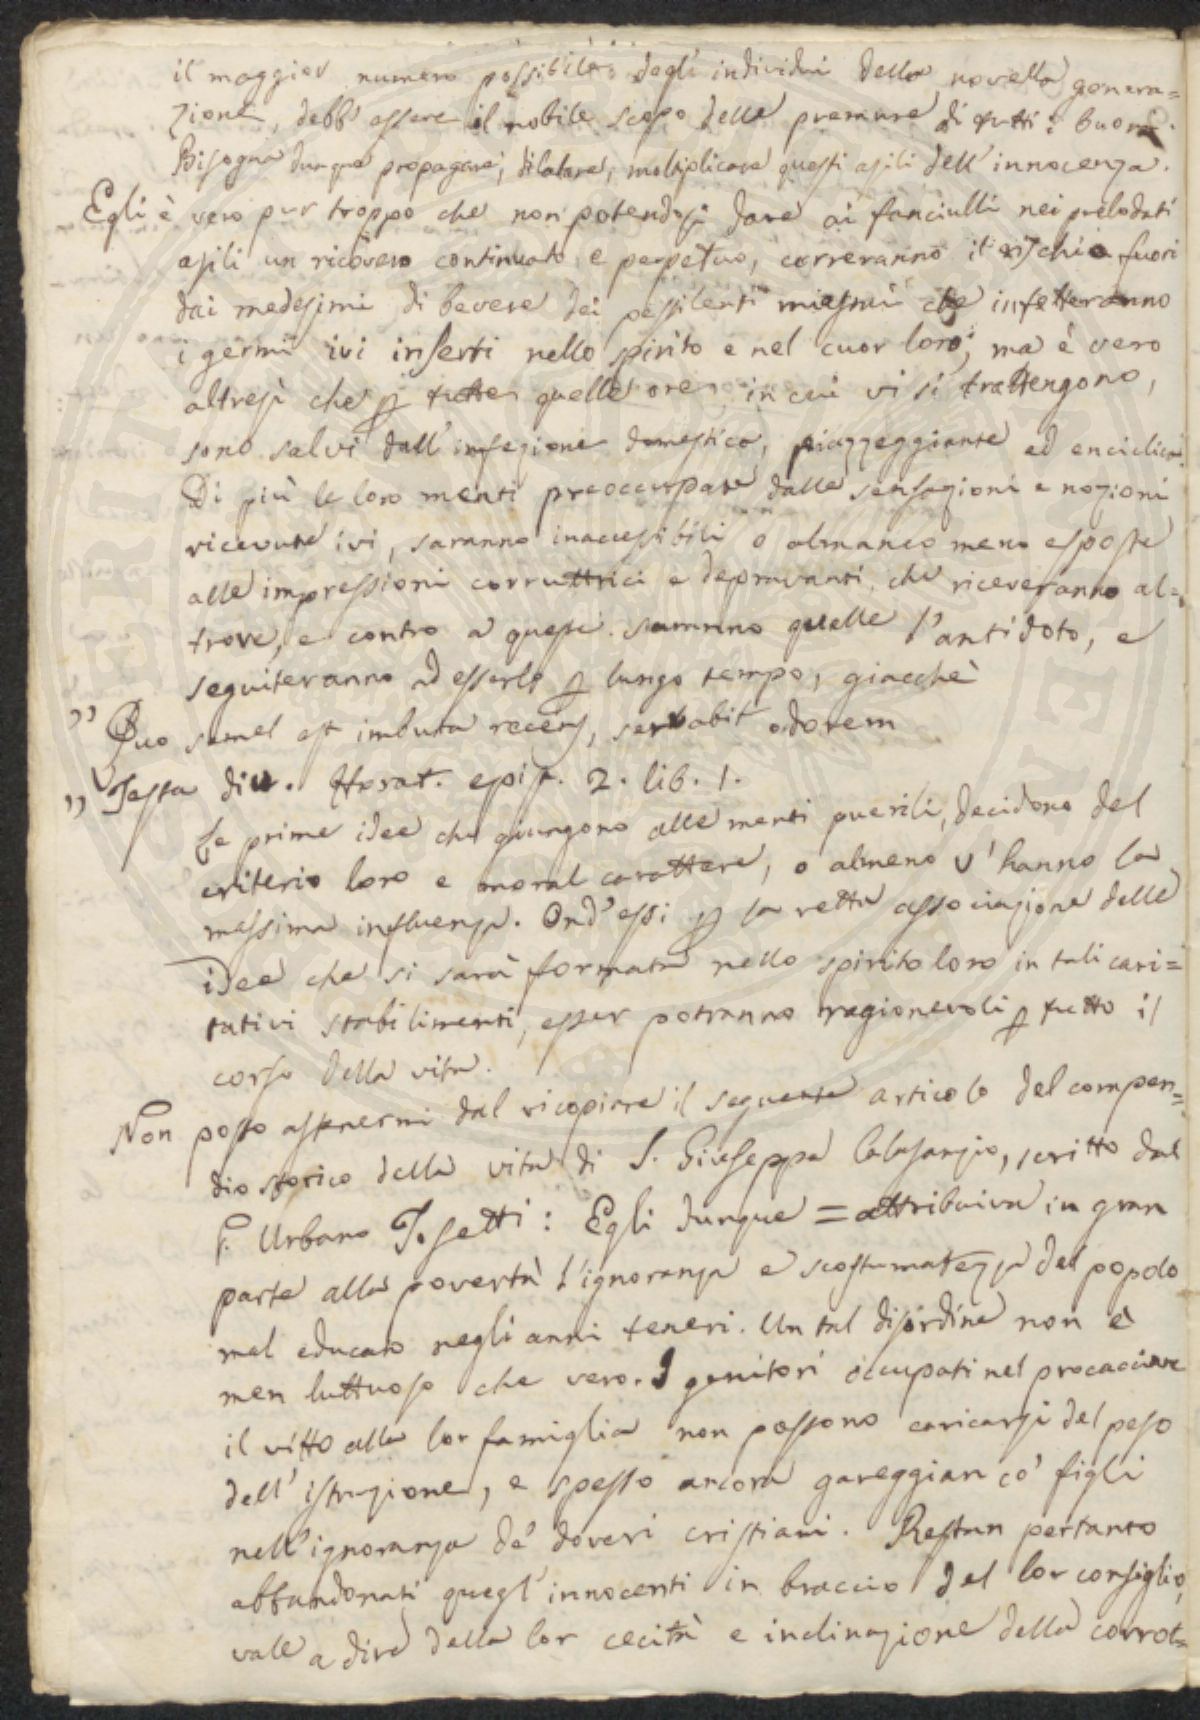 il maggior numero possibile degli individui della novella genera=
zione, debb' essere il nobile scopo delle premure di tutti i buoni.
Bisogna dunque propagare, dilatare, moltiplicare questi asili dell' innocenza.
Egli è vero pur troppo che non potendosi dare ai fanciulli nei prelodati
asili un ricovero continuato e perpetuo, correranno il rischio fuori
dai medesimi di bevere dei pestilenti miasmi che infetteranno
i germi ivi inserti nello spirito e nel cuor loro; ma è vero
altresì che p tutte quelle ore in cui vi si trattengono,
sono salvi dall' infezione domestica, piazzeggiante ed enciclica.
Di più le loro menti preoccupate dalle sensazioni e nozioni
ricevute ivi, saranno inaccessibili o almanco meno esposte
alle impressioni corruttrici e depravanti che riceveranno al=
trove, e contro a queste saranno quelle l'antidoto, e
seguiteranno ad esserlo p lungo tempo, giacchè
" Quo semel est imbuta recens, servabit odorem
" Testa diu. Horat. epist. 2. lib. 1.
Le prime idee che giungono alle menti puerili, decidono del
criterio loro e moral carattere, o almeno v' hanno la
massima influenza. Ond' essi p la retta associazione delle
idee che si sarà formata nello spirito loro in tali cari=
tativi stabilimenti, esser potranno ragionevoli p tutto il
corso della vita.
Non posso astenermi dal ricopiare il seguente articolo del compen=
dio storico della vita di S. Giuseppe Calasanzio, scritto dal
P. Urbano Tosetti: Egli dunque = attribuiva in gran
parte alla povertà l'ignoranza e scostumatezza del popolo
mal educato negli anni teneri. Un tal disordine non è
men luttuoso che vero. I genitori occupati nel procacciare
il vitto alla lor famiglia non possono caricarsi del peso
dell' istruzione, e spesso ancora gareggian co' figli
nell' ignoranza de' doveri cristiani. Restan pertanto
abbandonati quegl' innocenti in braccio del lor consiglio,
vale a dire della lor cecità e inclinazione della corrot=